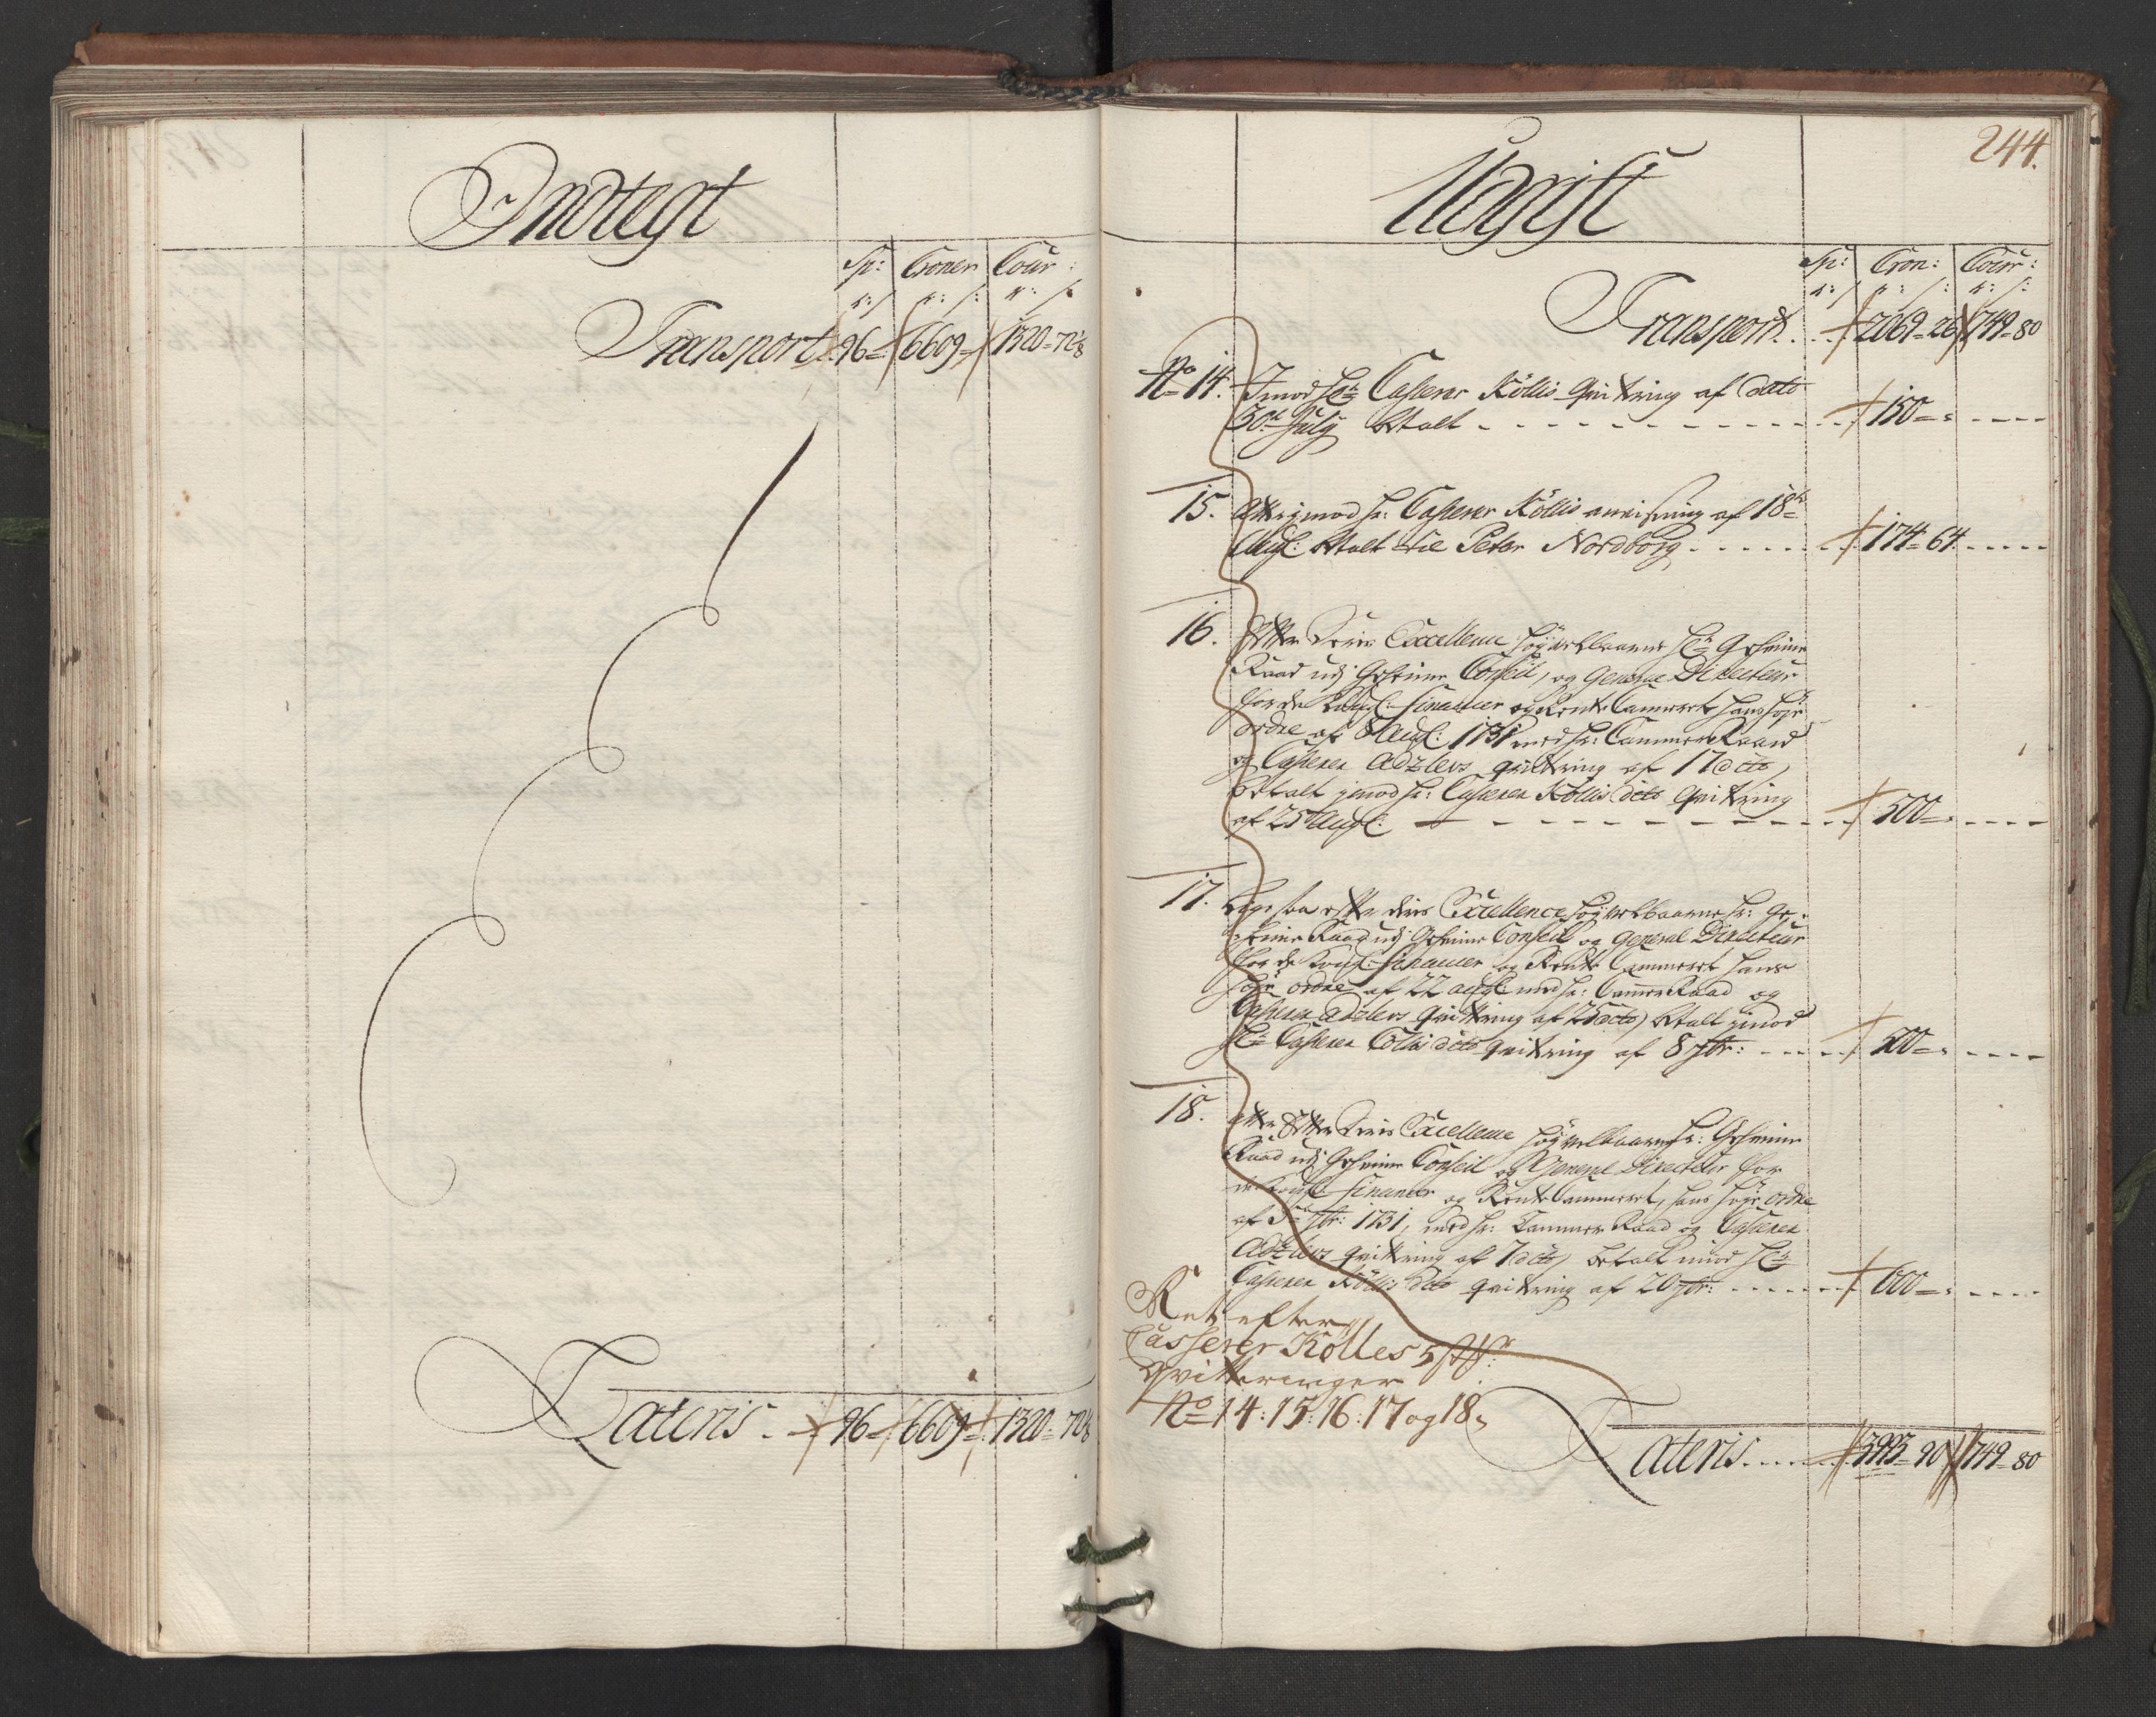 Indtegt
Sp: Croner Cour:
r: s r: s: r: s:
Transport 96= 6609= 1320=70⅛
Lateris 96= 6609= 1320=70⅛
244.
Udgift
Sp: Cron: Cour:
r: s r: s: r: s:
Transport 2069=26 749=80
No 14. Imod Hr Casserer Köllis qvittring af dato
30te July betalt 150=
15. Atter imod Hr: Casserer Köllis anvisning af 18de
Augs: betalt til Peter Nordborg 174=64
16. Efter Deris Excellence Høyvelbaarne Hr Geheime
Raad udj Geheime Conseil, og General Directeur
for de Kongl: Financer og Rente Cammeret hans høye
ordre af 8 Augs: 1731 med Hr: Cammer Raad
og Casserer Adzlevs qvittring af 17 dito,
betalt jmod Hr: Casserer Köllis dito qvittring
af 25 Augs: 500=
17. Lige saa efter deris Excellence Høyvelbaarne Hr: Ge-
heime Raad udj Geheime Conseil og General Directeur
for de Kongl: Financer og Rente Cammeret hans
høye ordre af 22 Augs: med Hr: Cammer Raad og
Casserer Adzlevs qvittring af 25 dito, betalt jmod
Hr Casserer Collis dito qvittring af 8 7br: 500=
18. Atter Efter Deris Excellence Høyvelbaarne Hr: Geheime
Raad udj Geheime Conseil og General Directeur for
de Kongl: Financer og Rente Cammeret, hans høye ordre
af 5te 7br: 1731, med Hr: Cammer Raad og Casserer
Adzlevs qvittring af 7 dito, betalt imod Hr
Casserer Köllis dito qvittring af 20 7br: 600=
Ret efter
Casserer Kølles 5
Qvitteringer
No 14: 15: 16: 17 og 18,
Lateris 3993=90 749=80